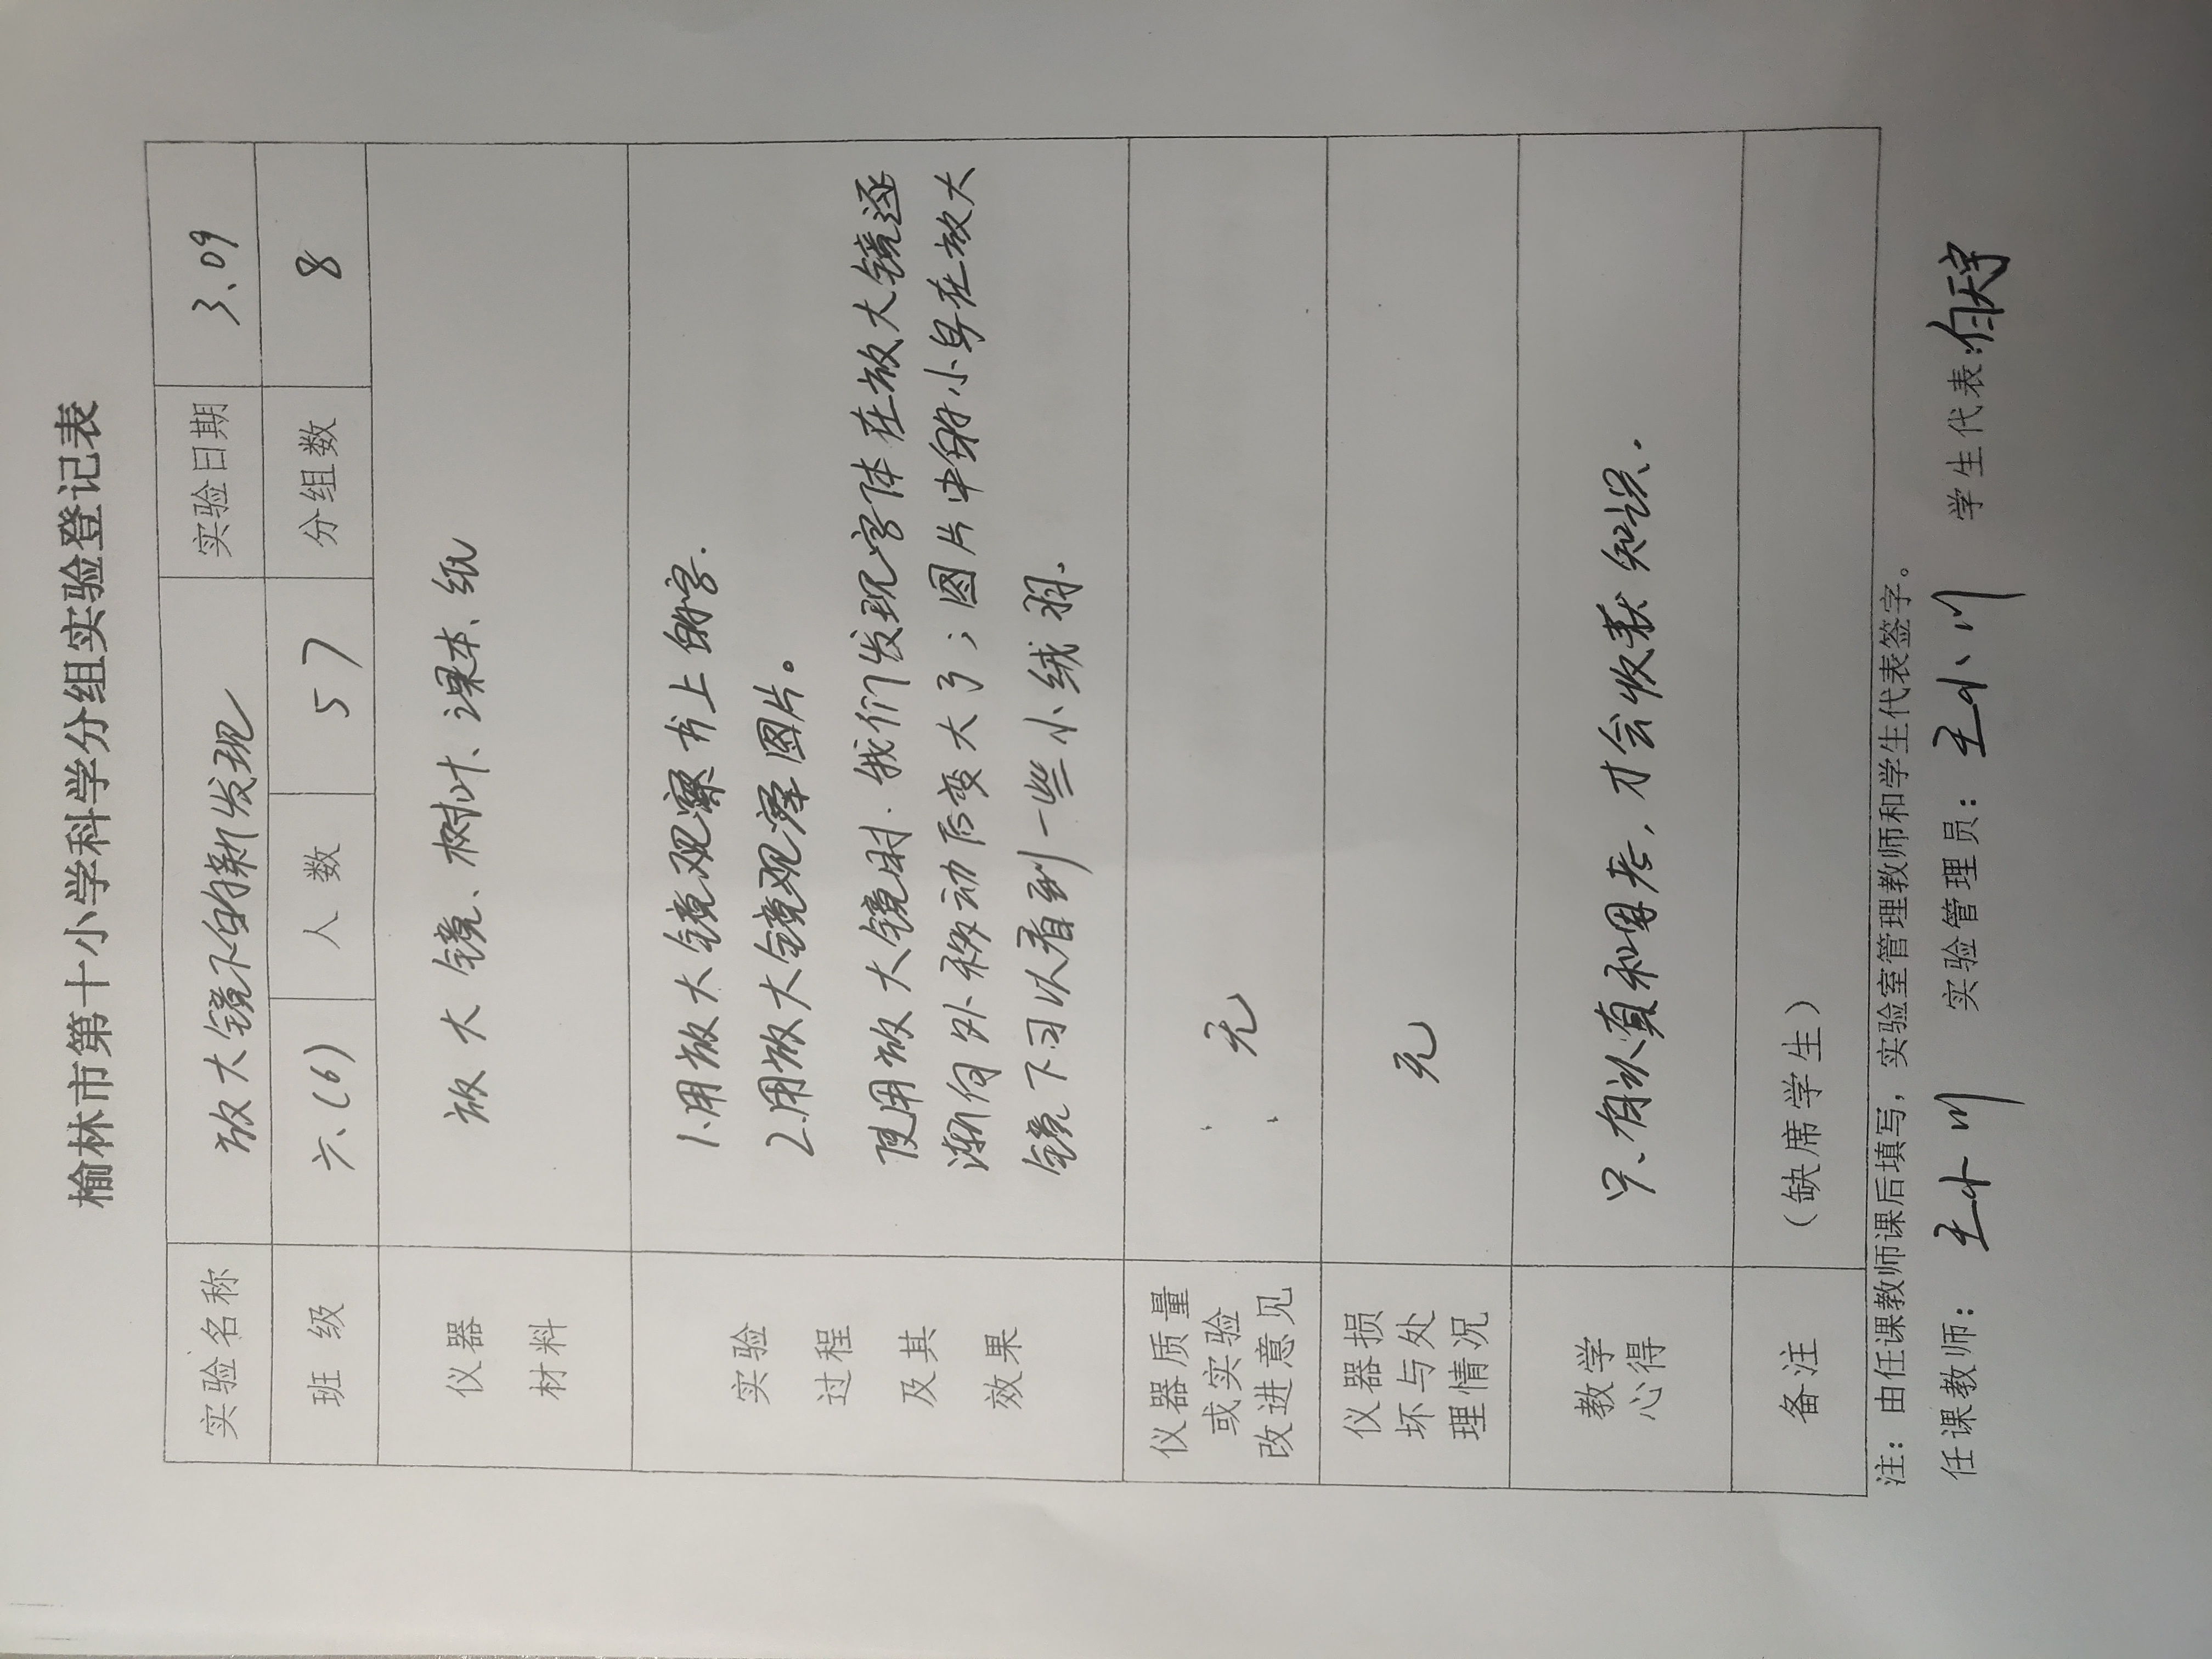 榆林市第十小学科学分组实验登记表
实验名称 放大镜下的新发现 实验日期 3.09
班级 六.(6) 人数 57 分组数 8
仪器材料 放大镜、树叶、课本、纸
实验过程及其效果
1.用放大镜观察书上的字.
2.用放大镜观察图片。
使用放大镜时.我们发现字体在放大镜逐
渐向外移动后变大了;图片中的小鸟在放大
镜下可以看到一些小绒羽.
仪器质量或实验改进意见 无
仪器损坏与处理情况 无
教学心得 只有认真和思考,才会收获知识.
备注 (缺席学生)
注:由任课教师课后填写,实验室管理教师和学生代表签字。
任课教师: 王小川 实验管理员: 王小川 学生代表:白天宇